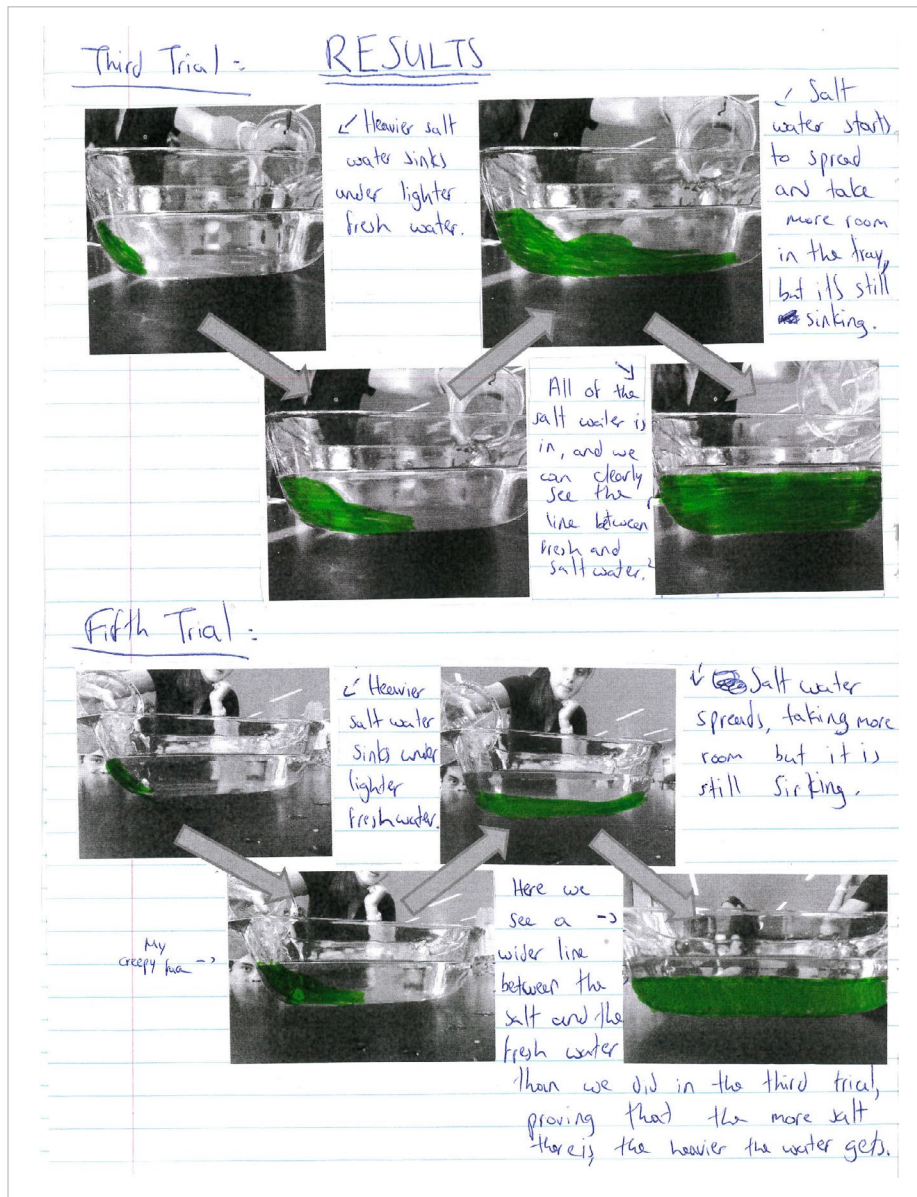 Third Trial:
RESULTS
↙ Heavier salt
water sinks
under lighter
fresh water.
↙ Salt
water starts
to spread
and take
more room
in the tray,
but it's still
sinking.
All of the
salt water is
in, and we
can clearly
see the
line between
fresh and
salt water.
Fifth Trial:
↙ Heavier
salt water
sinks under
lighter
freshwater.
↙ Salt water
spreads, taking more
room but it is
still sinking.
My
creepy →
Here we
see a →
wider line
between the
salt and the
fresh water
than we did in the third trial,
proving that the more salt
there is, the heavier the water gets.